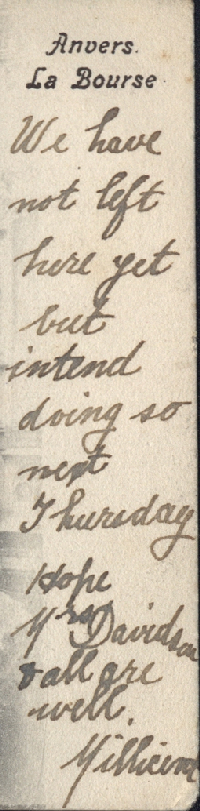 Anvers.
La Bourse
We have
not left
here yet
but
intend
doing so
next
Thursday
Hope
Mrs Davidson
& all are
well.
Millicent